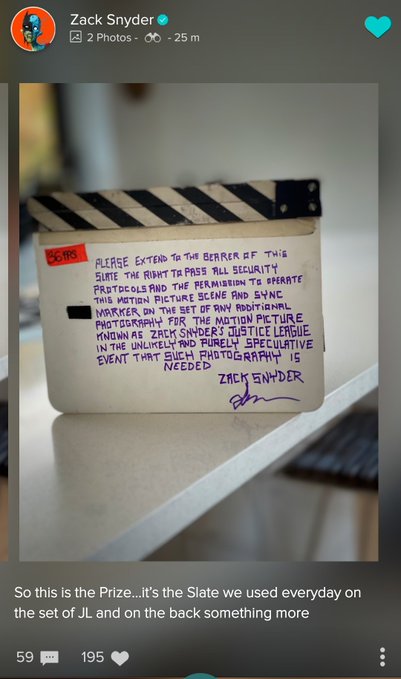 Zack Snyder
2 Photos - - 25 m
36 FPS
PLEASE EXTEND TO THE BEARER OF THIS
SLATE THE RIGHT TO PASS ALL SECURITY
PROTOCOLS AND THE PERMISSION TO OPERATE
THIS MOTION PICTURE SCENE AND SYNC
MARKER ON THE SET OF ANY ADDITIONAL
PHOTOGRAPHY FOR THE MOTION PICTURE
KNOWN AS ZACK SNYDER'S JUSTICE LEAGUE
IN THE UNLIKELY AND PURELY SPECULATIVE
EVENT THAT SUCH PHOTOGRAPHY IS
NEEDED
ZACK SNYDER
So this is the Prize...it's the Slate we used everyday on
the set of JL and on the back something more
59
195